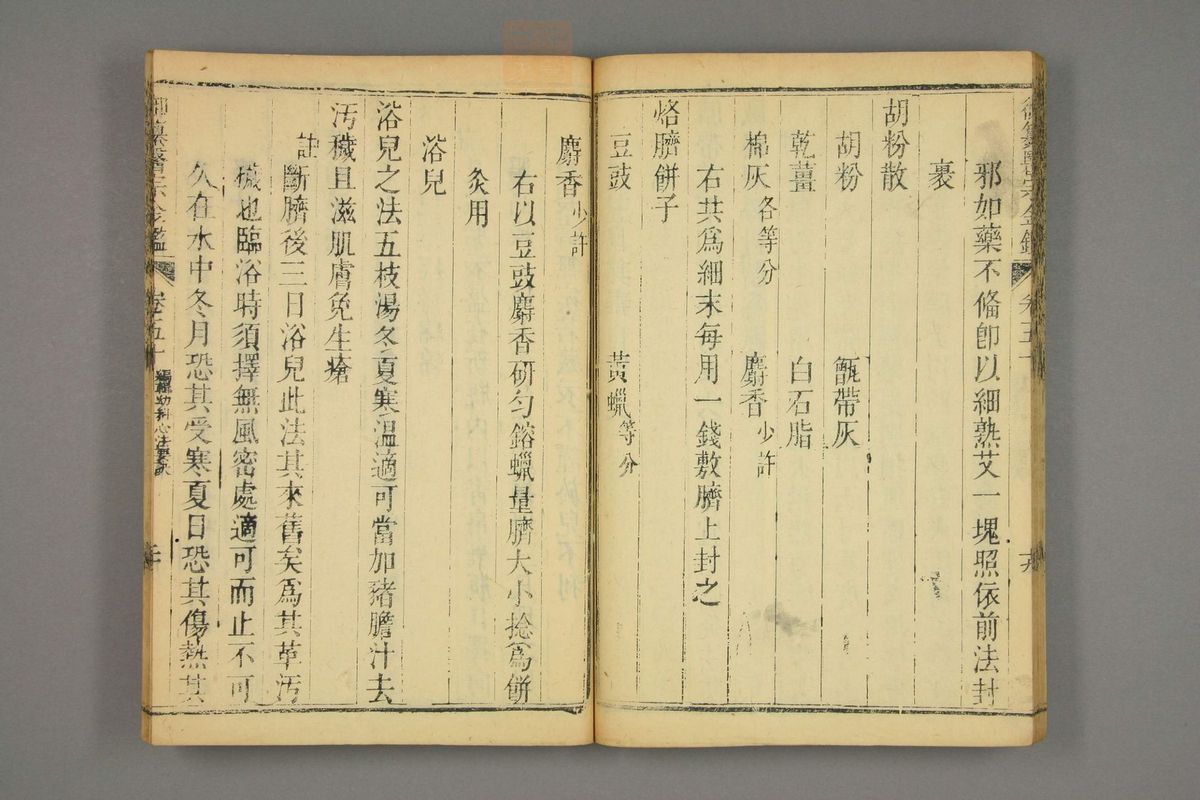 御纂醫宗金鑑 卷五十
邪如藥不備卽以細熟艾一塊照依前法封
裹
胡粉散
胡粉 甑帶灰
乾薑 白石脂
棉灰各等分 麝香少許
右共爲細末每用一錢敷臍上封之
烙臍餅子
豆豉 黃蠟等分
麝香少許
右以豆豉麝香研勻鎔蠟量臍大小捻爲餅
灸用
浴兒
浴兒之法五枝湯冬夏寒溫適可當加猪膽汁去
汚穢且滋肌膚免生瘡
註斷臍後三日浴兒此法其來舊矣爲其革汚
穢也臨浴時須擇無風密處適可而止不可
久在水中冬月恐其受寒夏日恐其傷熱其
御纂醫宗金鑑 卷五十 編輯幼科心法要訣